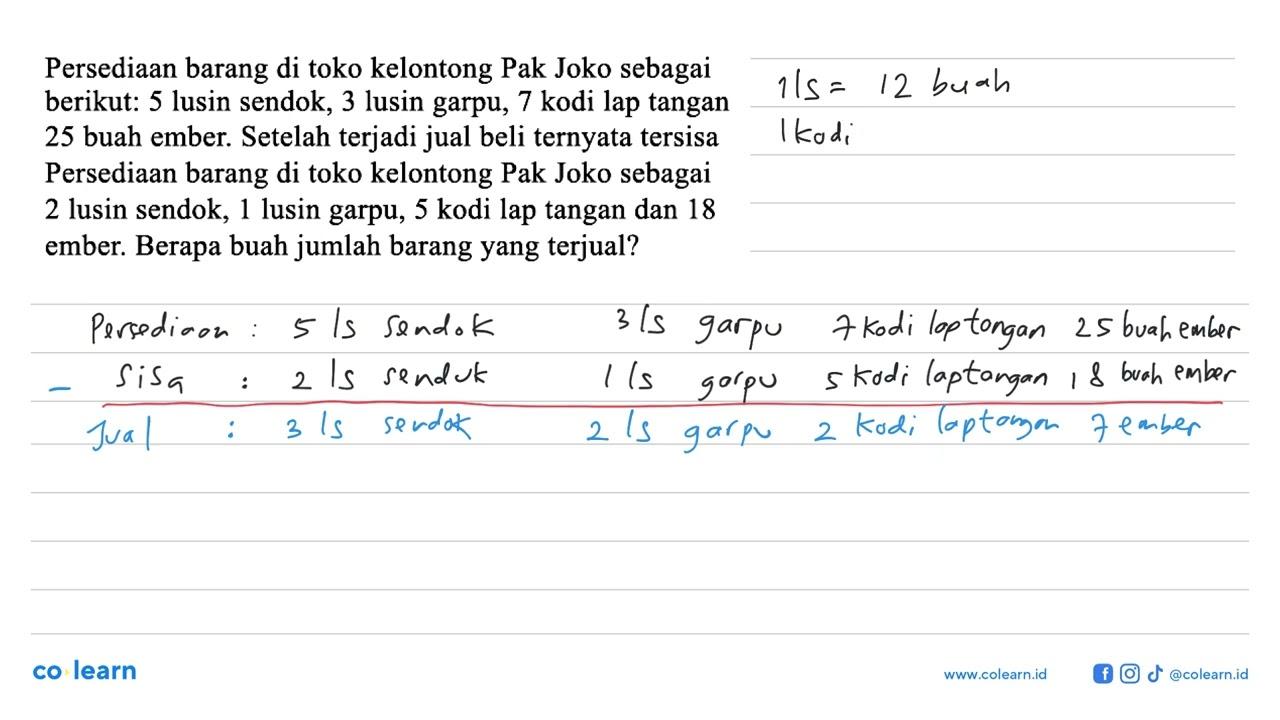 Persediaan barang di toko kelontong Pak Joko sebagai
berikut: 5 lusin sendok, 3 lusin garpu, 7 kodi lap tangan
25 buah ember. Setelah terjadi jual beli ternyata tersisa
Persediaan barang di toko kelontong Pak Joko sebagai
2 lusin sendok, 1 lusin garpu, 5 kodi lap tangan dan 18
ember. Berapa buah jumlah barang yang terjual?
1 ls = 12 buah
1 kodi
Persediaan : 5 ls sendok 3 ls garpu 7 kodi lap tangan 25 buah ember
- Sisa : 2 ls senduk 1 ls garpu 5 kodi lap tangan 18 buah ember
Jual : 3 ls sendok 2 ls garpu 2 kodi lap tangan 7 ember
co learn
www.colearn.id
@colearn.id